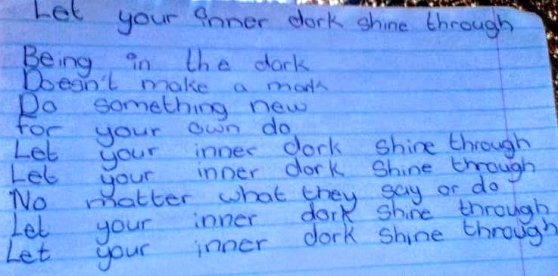 Let your inner dork shine through
Being in the dark
Doesn't make a mark
Do something new
For your own do
Let your inner dork shine through
Let your inner dork shine through
No matter what they say or do
Let your inner dork shine through
Let your inner dork shine through